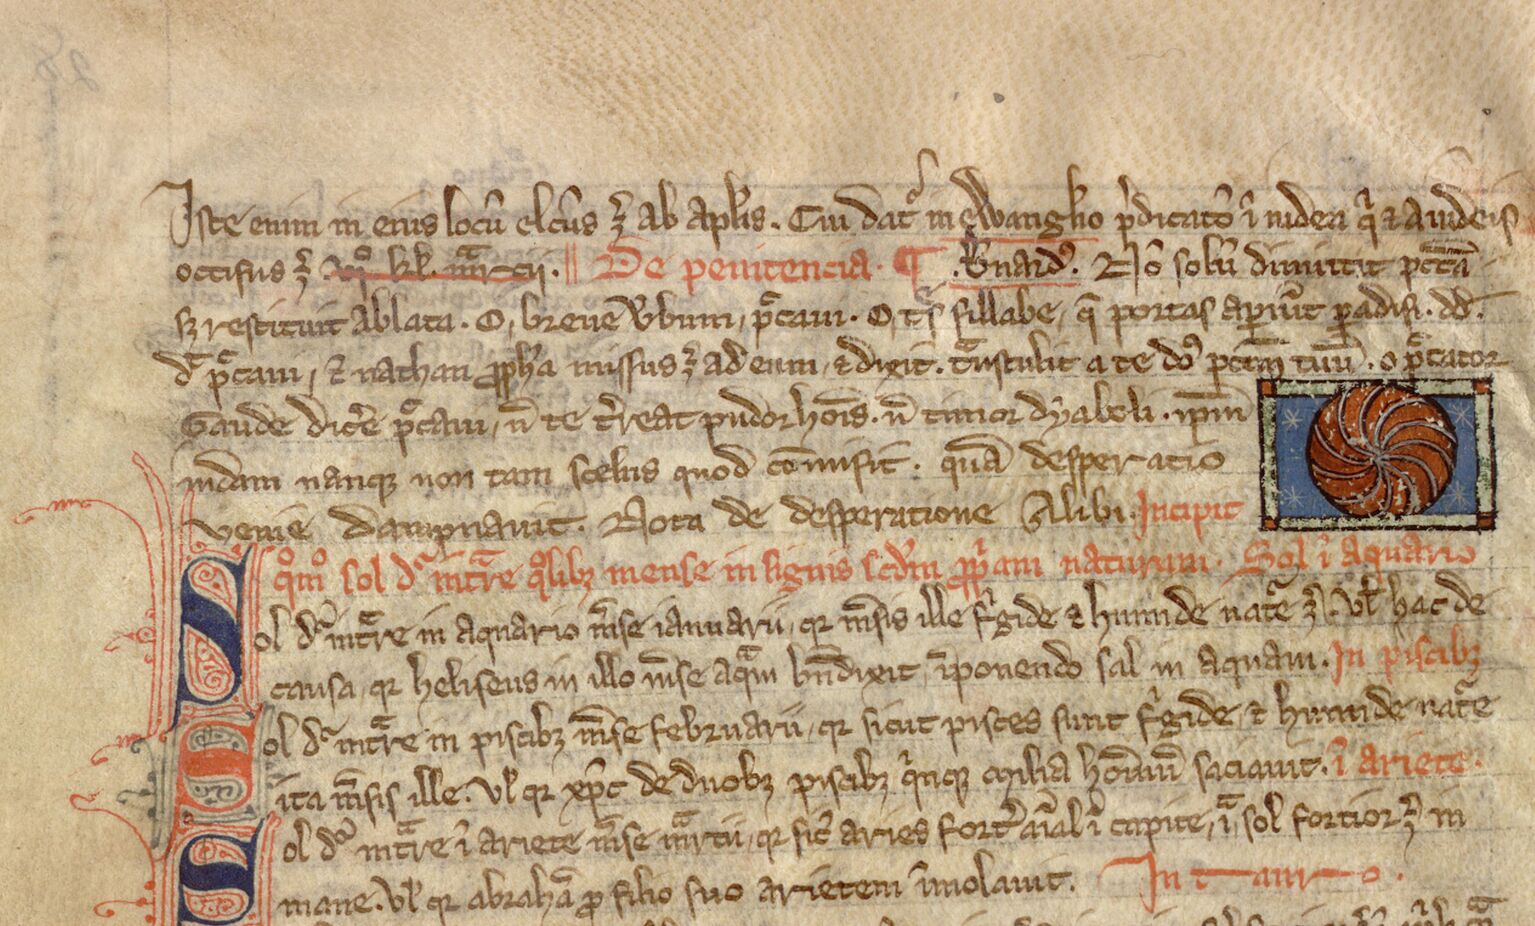 Iste enim in eius locū elc̄us ē ab apl̄is. Cui dat᷑ in ewangl̓io p̄dicato ī iudea q̓ 
occisus ē kl̄. m̄rcii. De penitencia. ¶ .B̓nard᷒. Nō solū dimittit pctā
sꝫ restituit ablata. O, breue v̄bum, pc̄caui. O, tres sillabe, q̄ portas aperiūt paradisi. dd̄.
dr̄ pc̄caui, ⁊ nathan ꝓph̄a missus ē ad eum, ⁊ dixit. t̄nstulit a te dn̄s pctm̄ tuū. o pc̄cator
Gaude dic̄e pc̄caui, n̄ te t̓reat pudor hoīs. n̄ timor dyaboli. ip̄m
iudam nanqꝫ non tam scelus quod cōmisit. quā desperatio
venie dampnauit. Nota de desperatione Alibi. Incipit
qm̊ sol dr̄ int̄re q̊libꝫ mense in signis scd̄m ꝓp̓am naturam. Sol ī aquario
Sol dr̄ int̄re in aquario m̄se ianuarii, qꝛ m̄sis ille f̓gide ⁊ humide nat᷑e ē. vl̄ hac de
causa, qꝛ heliseus in illo m̄se aq̄m bn̄dixit, īponendo sal in aquam. In piscibꝫ
Sol dr̄ int̄re in piscibꝫ m̄se februarii, qꝛ sicut pisces sunt f̓gide, ⁊ humide nat᷑e
ita m̄sis ille. vl̄ qꝛ xp̄c de duobꝫ piscibꝫ q̓nqꝫ milia hoīnū saciauit. ī ariete.
Sol dr̄ int̄re ī ariete m̄se m̄rtii, qꝛ sic̄ aries fort̓ aīal ē ī capite, ita, sol fortior ē in
mane. vl̄ qꝛ abrahā ꝓ filio suo arietem īmolauit. In tauro.